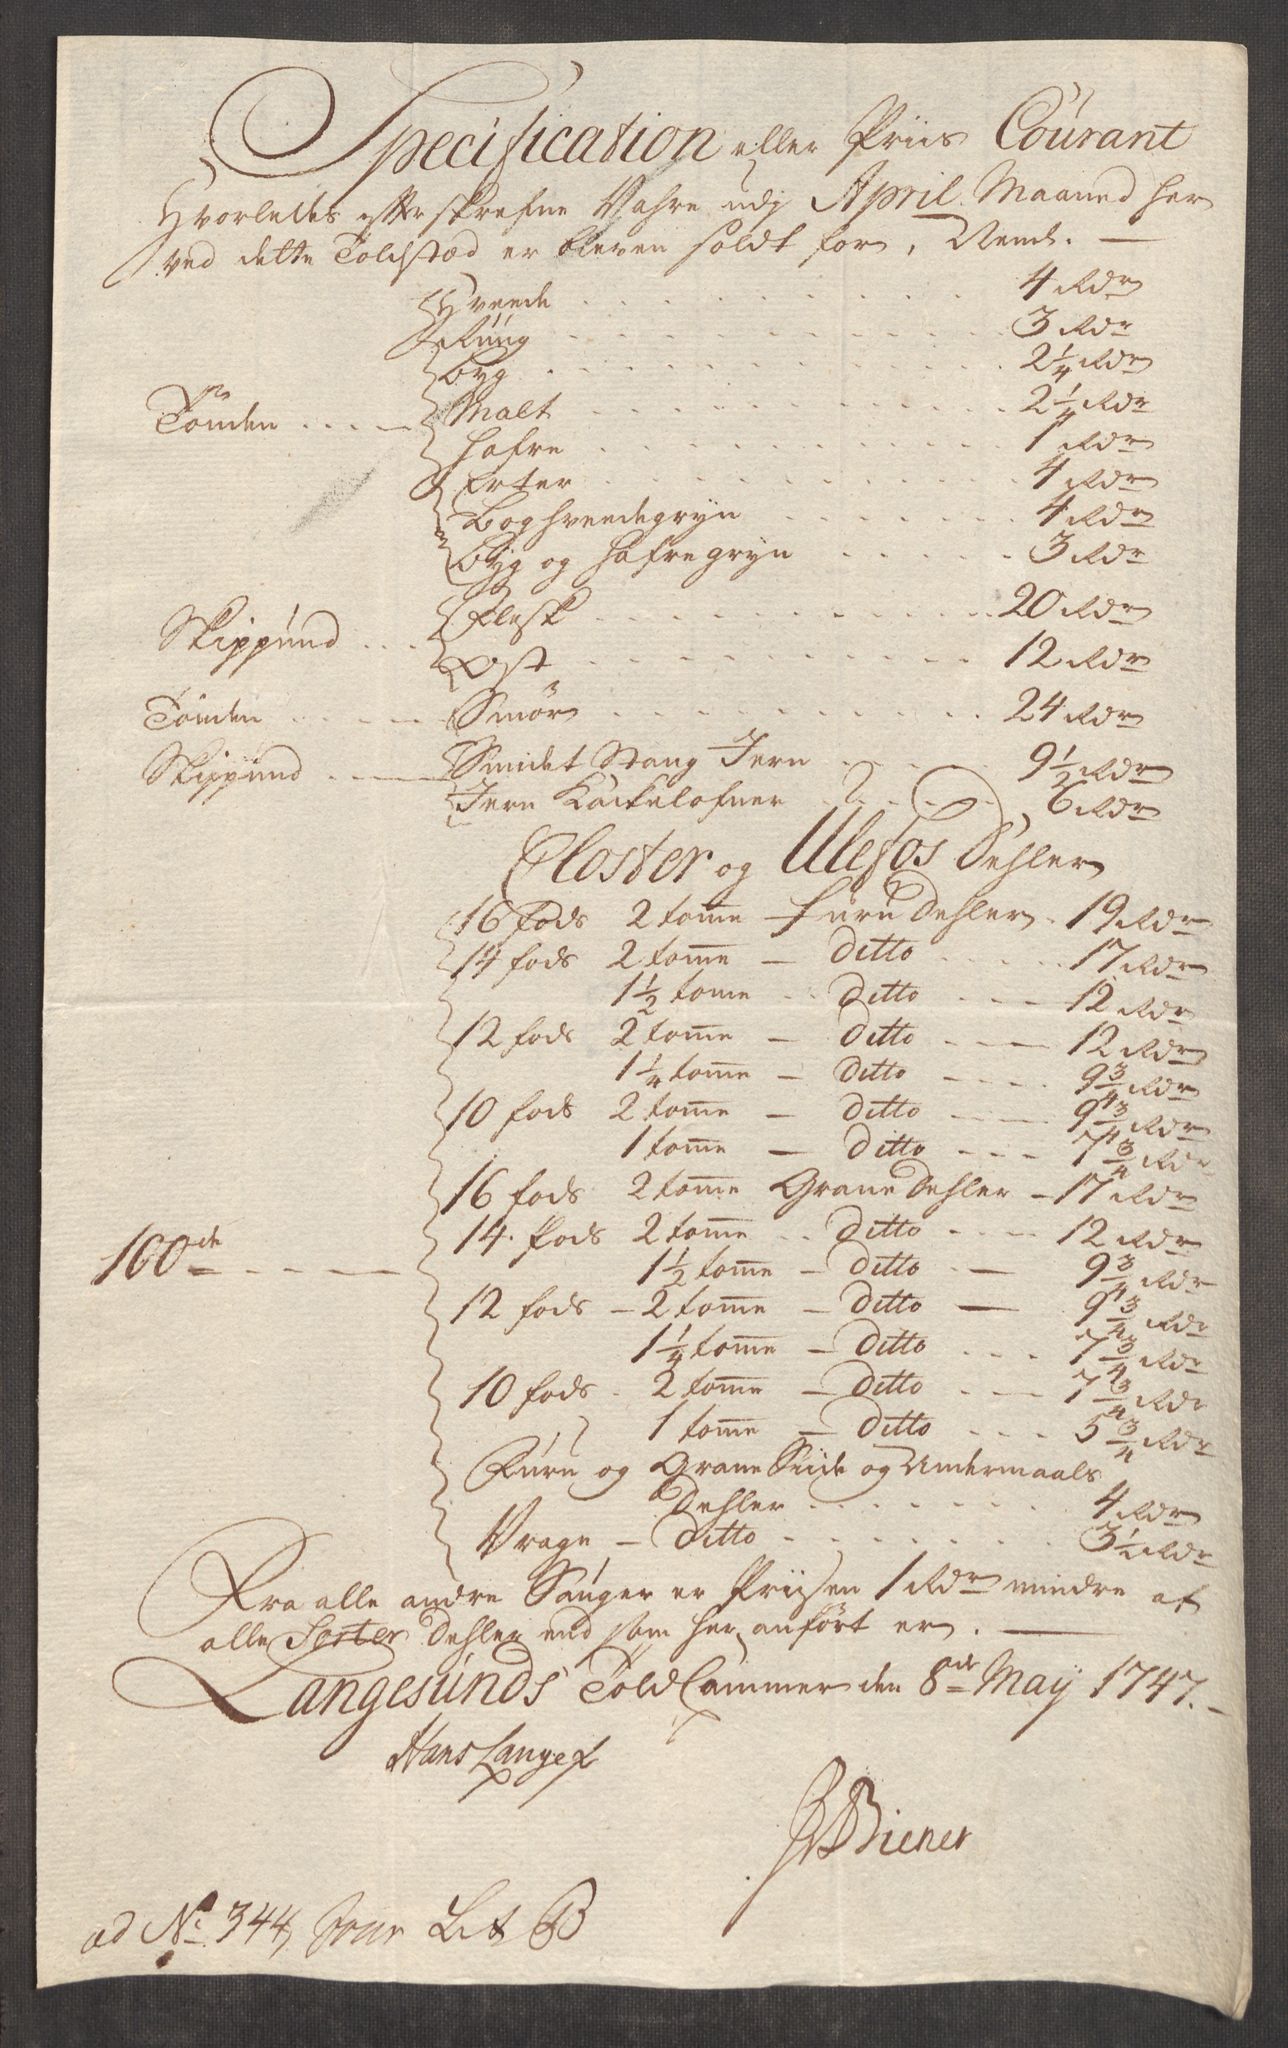 Specification eller Priis Courant
Hvorledes efterskrefne Vahre udj April Maaned her
ved dette Toldsted er bleven soldt for, Neml. —
Hveede . . . 4 Rdr
Rúúg . . . 3 Rdr
Byg . . . 2 1/4 Rdr
Tönden . . . . Malt . . . 2 1/4 Rdr
Hafre . . . 1 Rdr
Erter . . . 4 Rdr
Boghveedegryn . . . 4 Rdr
Byg og Hafre gryn . . . 3 Rdr
Skippúnd . . . Flesk . . . 20 Rdr
Ost . . . 12 Rdr
Tönden . . . Smør . . . 24 Rdr
Skippúnd . . . Smidet Stang Jern . . . 9 1/2 Rdr
Jern Kackelofner . . . 6 Rdr
Closter og Ulefos Dehler
16 fods 2 tomme Furu Dehler . 19 Rdr
14 fods 2 tomme — Ditto . . . 17 Rdr
1 1/2 tome . . Ditto . . . 12 Rdr
12 fods 2 tomme — Ditto . . . 12 Rdr
1 1/4 tomme — Ditto . . . 9 3/4 Rdr
10 fods 2 tomme — Ditto . . . 9 3/4 Rdr
1 tomme — Ditto . . . 7 3/4 Rdr
16 fods 2 tomme Grane Dehler — 17 Rdr
14. fods 2 tomme . . Ditto . . . 12 Rdr
100de . . . 1 1/2 tomme — Ditto . — 9 3/4 Rdr
12 fods — 2 tomme — Ditto — 9 3/4 Rdr
1 1/4 tomme — Ditto . . . 7 3/4 Rdr
10 fods . 2 tomme — Ditto . . . 7 3/4 Rdr
1 tomme — Ditto . . . 5 3/4 Rdr
Furu og Grane Siide og Undermaals
Dehler . . . 4 Rdr
Vrage — Ditto . . . 3 1/2 Rdr
Fra alle andre Sauger er Priisen 1 Rdr mindre af
alle Sorter Dehler end som her anfört er. —
Langesúnds Told Cammer den 8de May 1747. -
Hans Lange
Biener
ad No. 344, Lit B